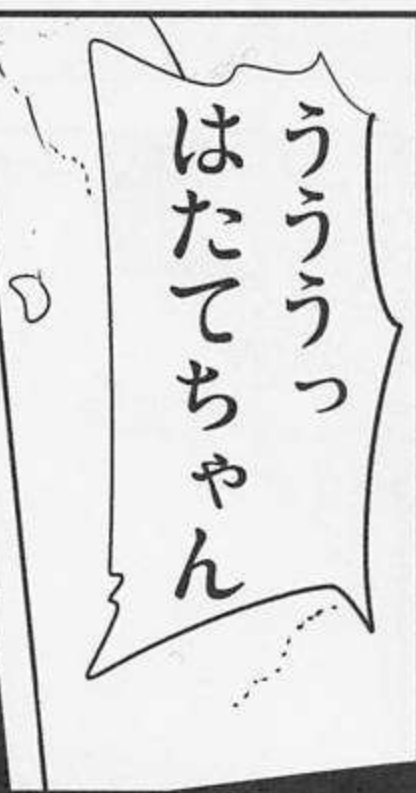 うううっ
はたてちゃん